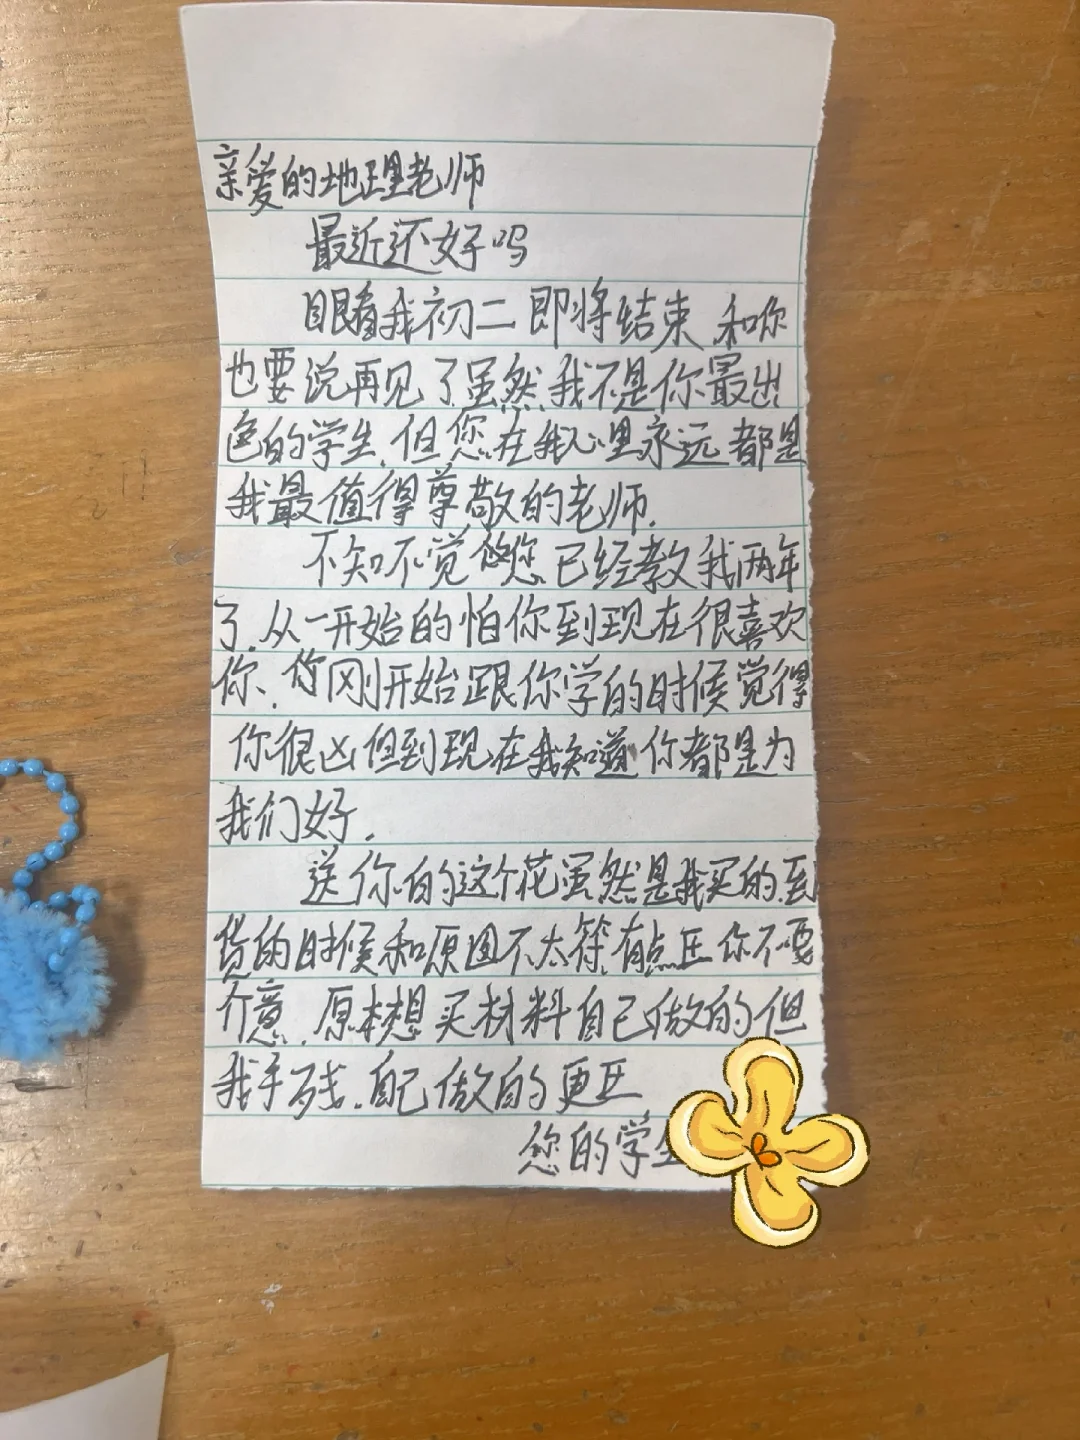 亲爱的地理老师
最近还好吗
眼看我初二即将结束 和你
也要说再见了虽然我不是你最出
色的学生,但您在我心里永远都是
我最值得尊敬的老师.
不知不觉 您已经教我两年
了.从一开始的怕你到现在很喜欢
你、你刚开始跟你学的时候觉得
你很凶但到现在我知道你都是为
我们好.
送你的这个花虽然是我买的.到
货的时候和原图不太符.有点丑你不要
介意.原本想买材料自己做的但
我手残.自己做的更丑
您的学生